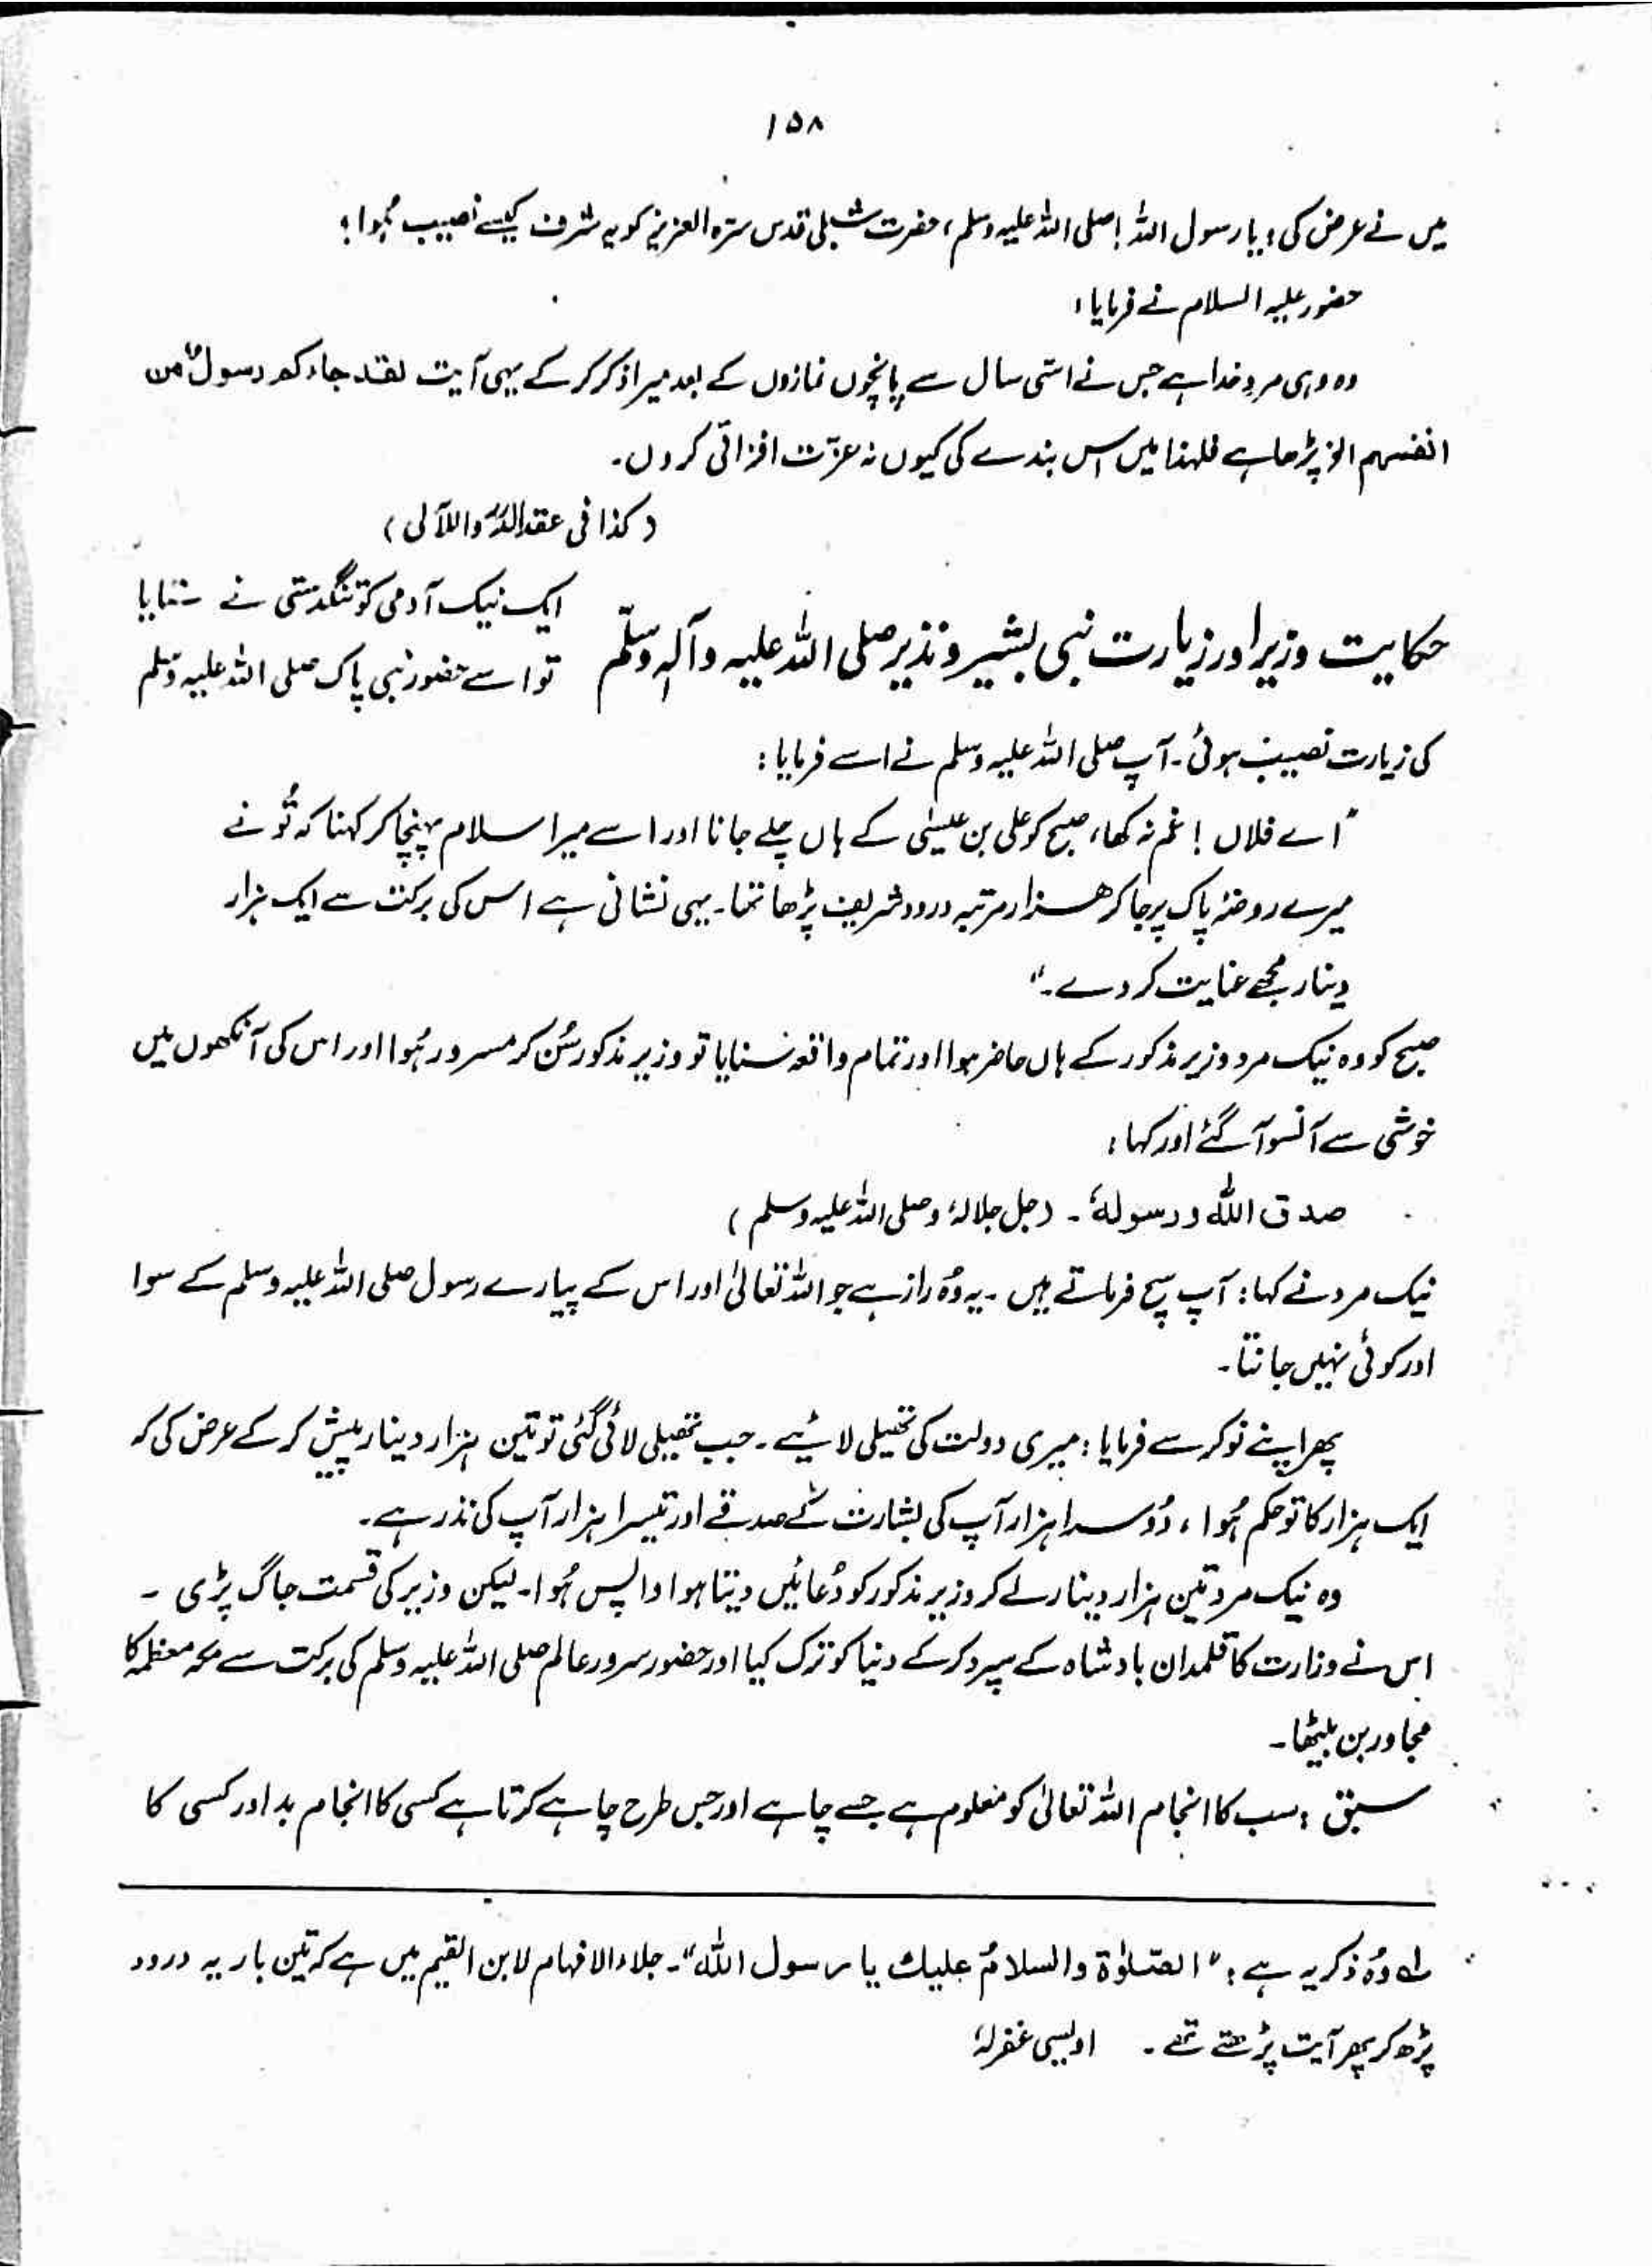 ۱۵۸
میں نے عرض کی: یا رسول اللہ! صلی اللہ علیہ وسلم، حضرت شبلی قدس سرہ العزیز کو یہ شرف کیسے نصیب ہُوا؟
حضور علیہ السلام نے فرمایا:
وہ وہی مردِ خدا ہے جس نے اسّی سال سے پانچوں نمازوں کے بعد میرا ذکر کر کے یہی آیت لقد جاءکم رسول من
انفسہم الخ پڑھا ہے فلہٰذا میں اس بندے کی کیوں نہ عزّت افزائی کروں۔
(کذا فی عقد الدرر واللآلی)
حکایت وزیر اور زیارت نبی بشیر و نذیر صلی اللہ علیہ وآلہٖ وسلّم
ایک نیک آدمی کو تنگدستی نے ستایا
تو اسے حضور نبی پاک صلی اللہ علیہ وسلم
کی زیارت نصیب ہوئی۔ آپ صلی اللہ علیہ وسلم نے اسے فرمایا:
"اے فلاں! غم نہ کھا، صبح کو علی بن عیسیٰ کے ہاں چلے جانا اور اسے میرا سلام پہنچا کر کہنا کہ تُو نے
میرے روضۂ پاک پر جا کر ھزار مرتبہ درود شریف پڑھا تھا۔ یہی نشانی ہے اس کی برکت سے ایک ہزار
دینار مجھے عنایت کر دے۔"
صبح کو وہ نیک مرد وزیر مذکور کے ہاں حاضر ہوا اور تمام واقعہ سنایا تو وزیر مذکور سُن کر مسرور ہُوا اور اس کی آنکھوں میں
خوشی سے آنسو آ گئے اور کہا:
صدق اللہ ورسولہٗ۔ (جل جلالہٗ وصلی اللہ علیہ وسلم)
نیک مرد نے کہا: آپ سچ فرماتے ہیں۔ یہ وُہ راز ہے جو اللہ تعالیٰ اور اس کے پیارے رسول صلی اللہ علیہ وسلم کے سوا
اور کوئی نہیں جانتا۔
پھر اپنے نوکر سے فرمایا: میری دولت کی تھیلی لائیے۔ جب تھیلی لائی گئی تو تین ہزار دینار پیش کر کے عرض کی کہ
ایک ہزار کا تو حکم ہُوا، دُوسرا ہزار آپ کی بشارت کے صدقے اور تیسرا ہزار آپ کی نذر ہے۔
وہ نیک مرد تین ہزار دینار لے کر وزیر مذکور کو دُعائیں دیتا ہوا واپس ہُوا۔ لیکن وزیر کی قسمت جاگ پڑی۔
اس نے وزارت کا قلمدان بادشاہ کے سپرد کر کے دنیا کو ترک کیا اور حضور سرور عالم صلی اللہ علیہ وسلم کی برکت سے مکہ معظمہ کا
مجاور بن بیٹھا۔
سبق: سب کا انجام اللہ تعالیٰ کو معلوم ہے جسے چاہے اور جس طرح چاہے کرتا ہے کسی کا انجام بد اور کسی کا
لہ وُہ ذکر یہ ہے: "الصّلوٰۃ والسلامُ علیك یا رسول اللہ"۔ جلاء الافہام لابن القیم میں ہے کہ تین بار یہ درود
پڑھ کر پھر آیت پڑھتے تھے۔ اویسی غفرلہٗ